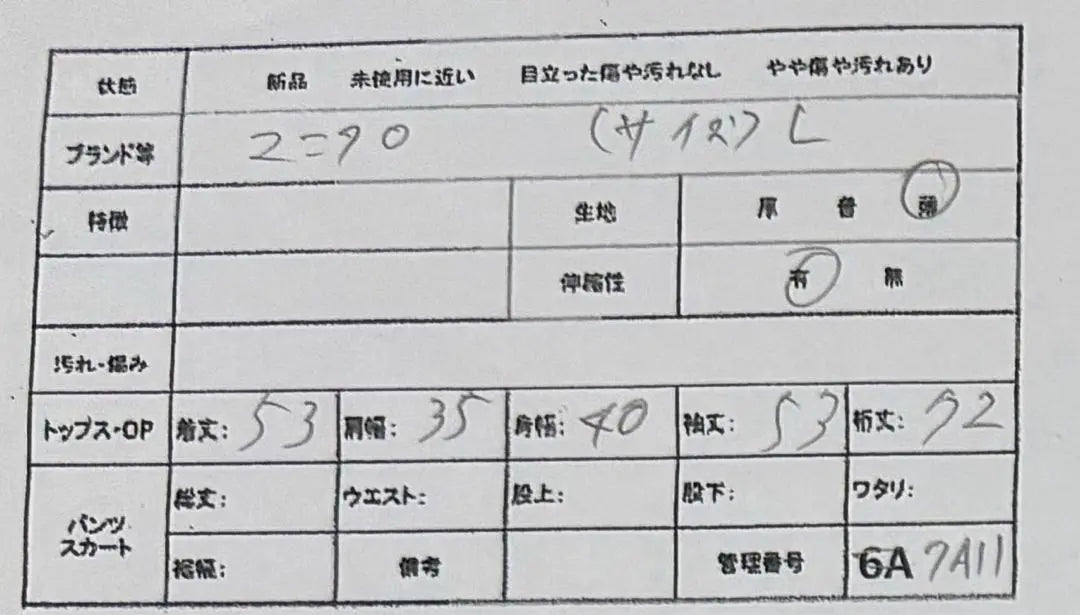 状態 新品 未使用に近い 目立った傷や汚れなし やや傷や汚れあり
ブランド等 ユニクロ (サイズ) L
特徴 生地 厚 普 薄
伸縮性 有 無
汚れ・傷み
トップス・OP 着丈: 53 肩幅: 35 身幅: 40 袖丈: 53 裄丈: 72
パンツ
スカート
総丈: ウエスト: 股上: 股下: ワタリ:
裾幅: 備考 管理番号 6A 7A11